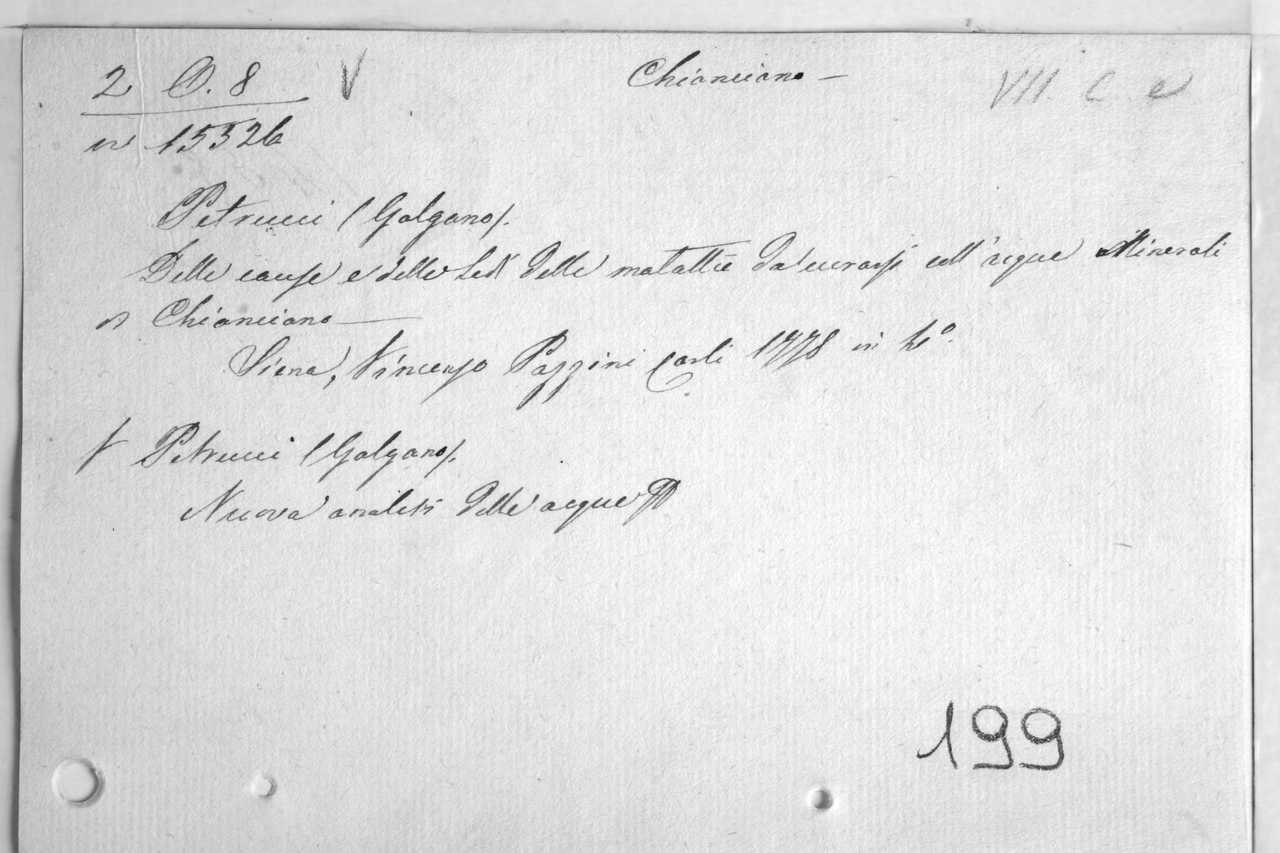 2 O. 8 V Chianciano — VII. C. e
in 15526
Petrucci (Galgano).
Delle cause e delle sedi delle malattie da curarsi coll'acque Minerali
di Chianciano —
Siena, Vincenzo Pazzini Carli 1778 in 4º.
V Petrucci (Galgano).
Nuova analisi delle acque
199